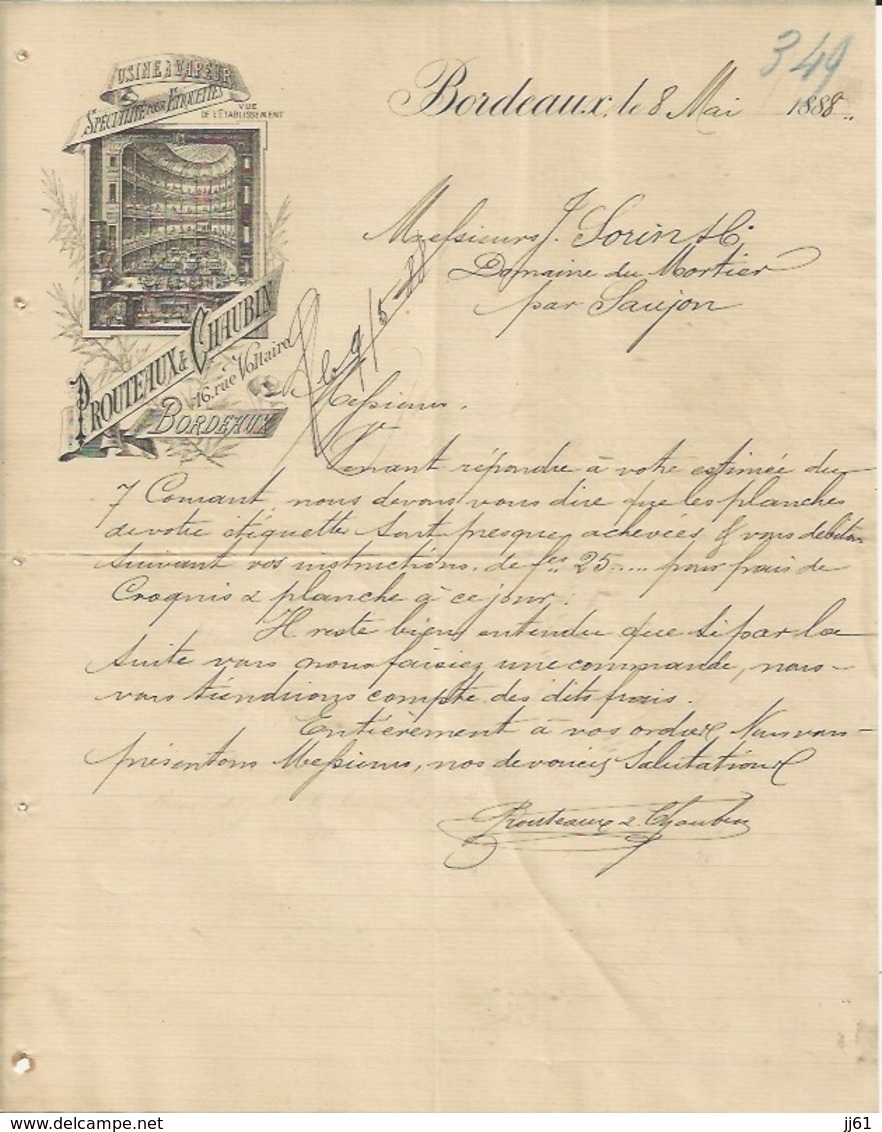 349
USINE À VAPEUR
SPÉCIALITÉ POUR ÉTIQUETTES
VUE
DE L'ÉTABLISSEMENT
PROUTEAUX & CHAUBIN
16, rue Voltaire
BORDEAUX
Bordeaux, le 8 Mai 1888
Messieurs J. Sorin & Cie
Domaine du Mortier
par Saujon
9/5 88
Messieurs,
Venant répondre à votre estimée du
7 Courant, nous devons vous dire que les planches
de votre étiquette sont presque achevées & vous débitons
suivant vos instructions, de fcs 25 .... pour frais de
Croquis & planche à ce jour.
Il reste bien entendu que si par la
suite vous nous faisiez une commande, nous
vous tiendrions compte des dits frais.
Entièrement à vos ordres Nous vous
présentons Messieurs, nos dévouées Salutations
Prouteaux & Chaubin
delcampe.net
jj61